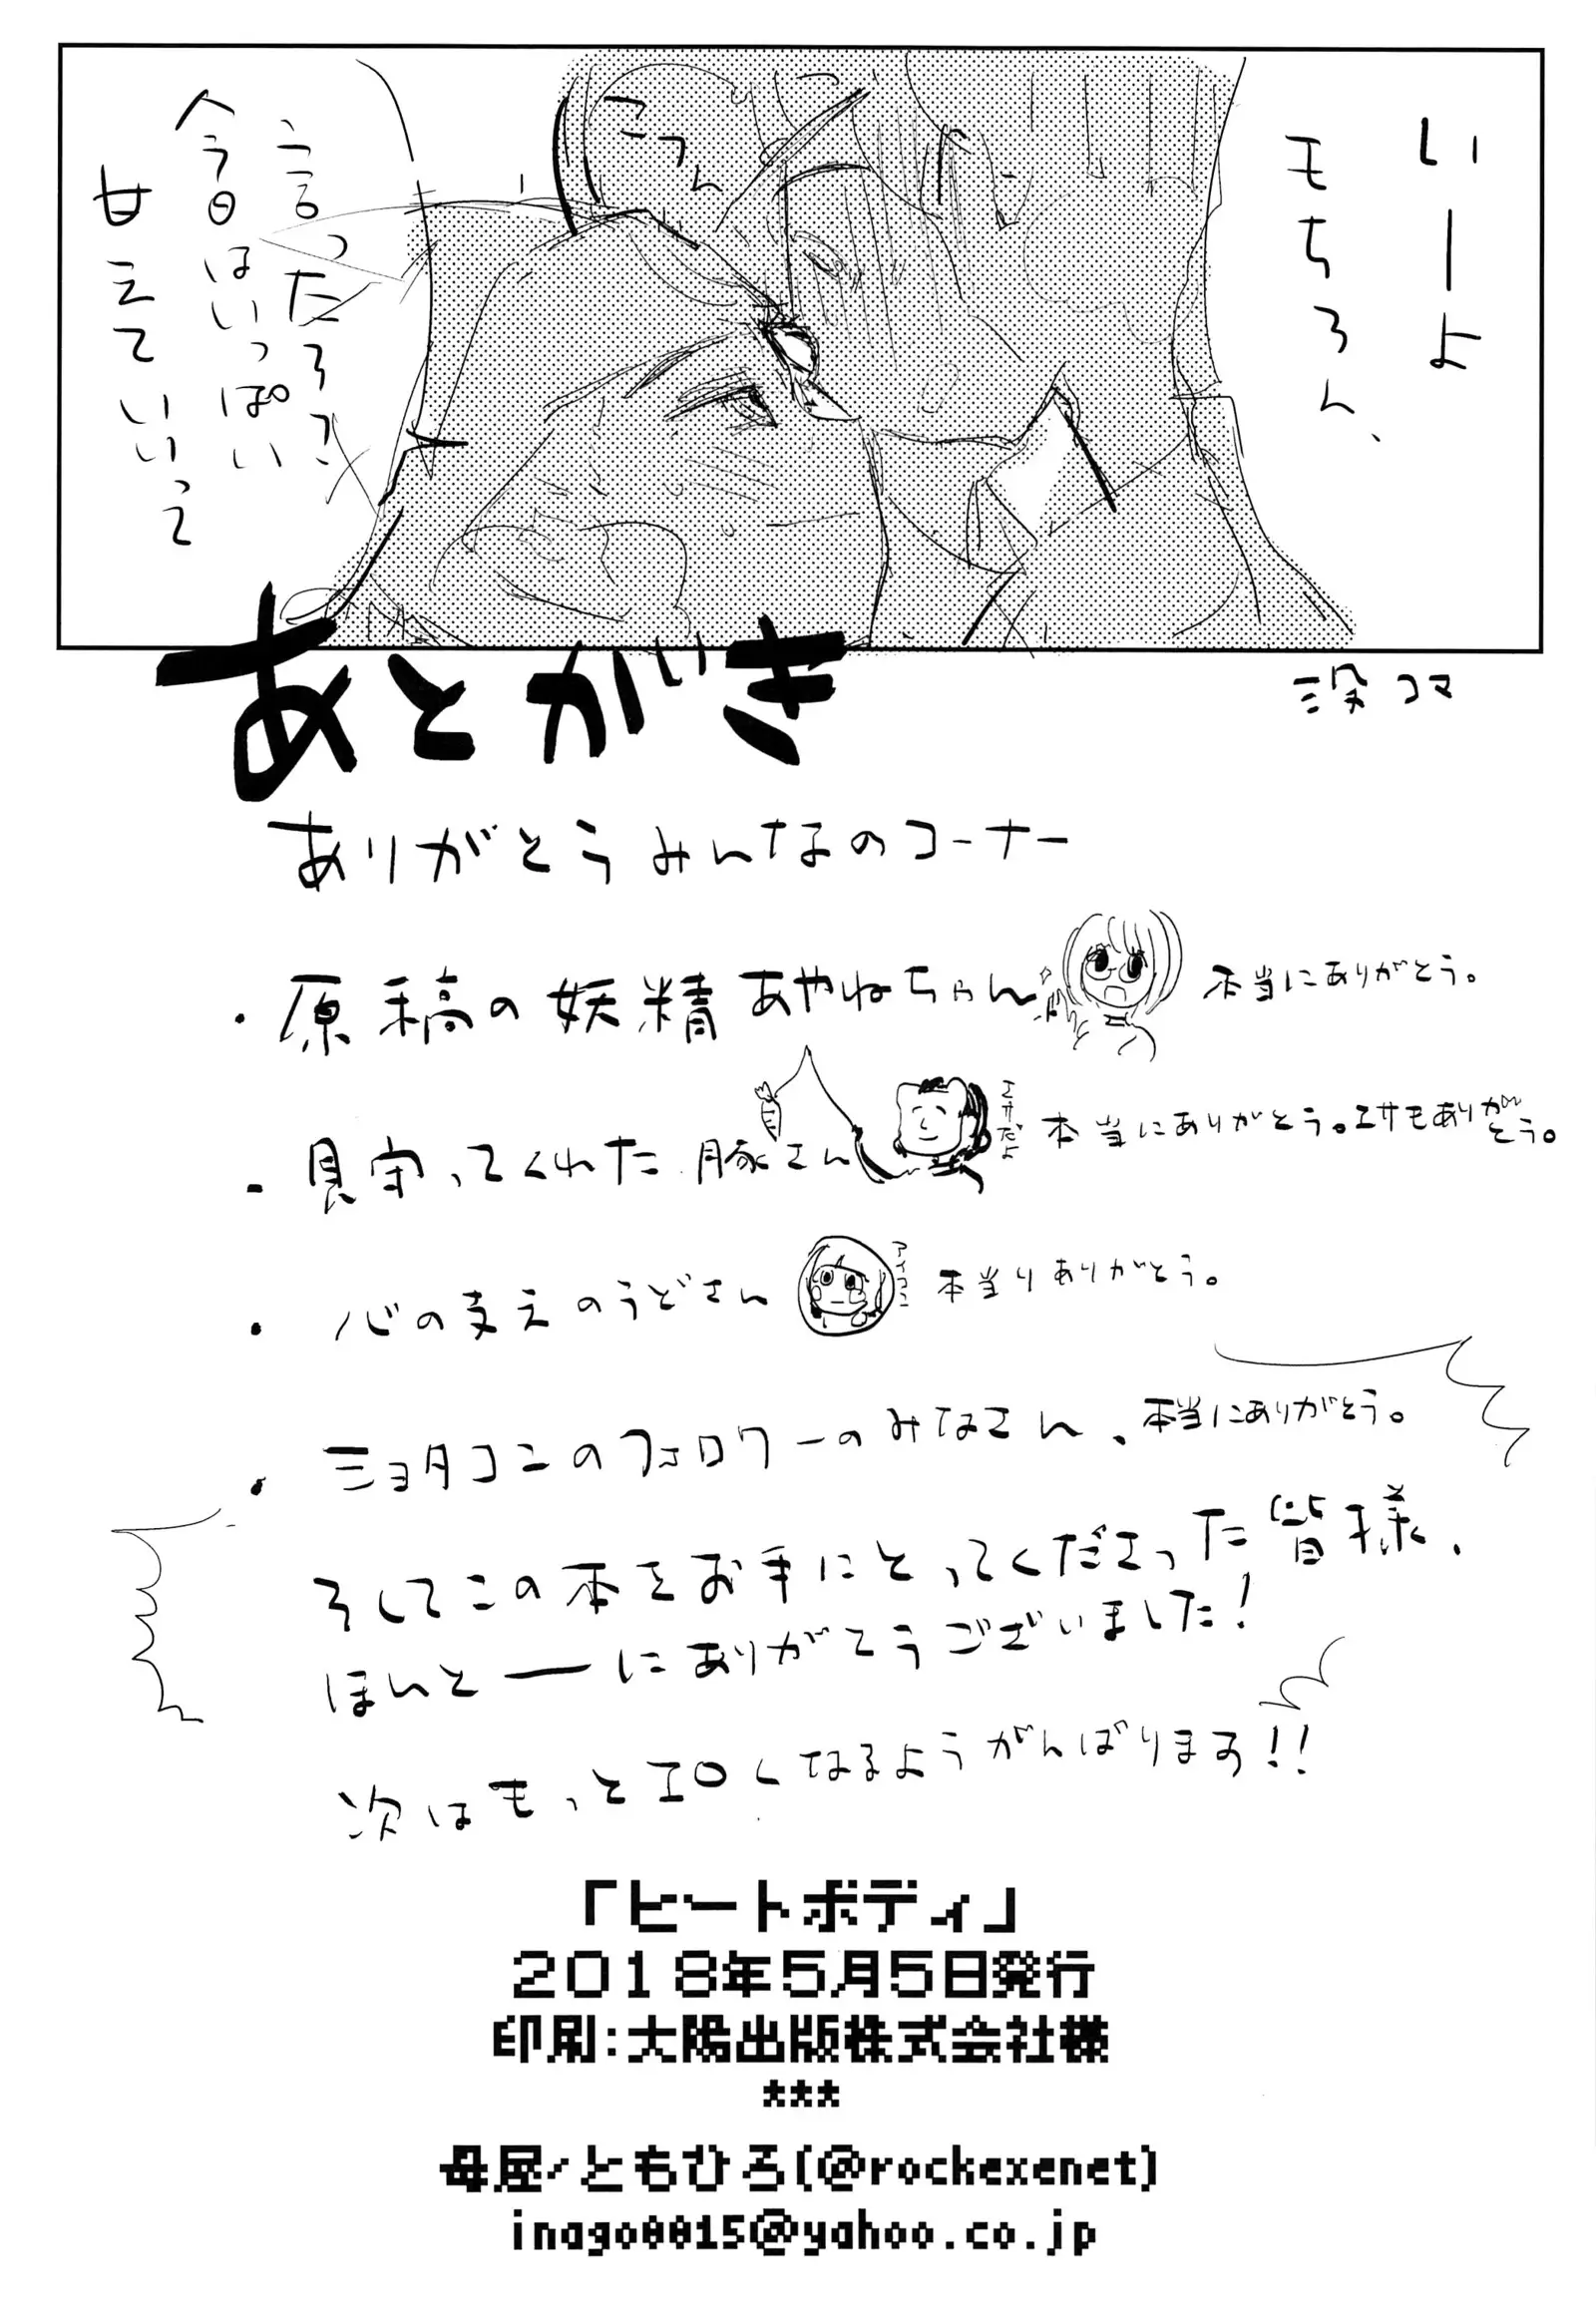 いーよ
モちろん、
こつん
言ったろ?
今日はいっぱい
甘えていいって
没コマ
あとがき
ありがとうみんなのコーナー
・原稿の妖精あやねちゃん 本当にありがとう。
・見守ってくれた豚さん エサだよ 本当にありがとう。エサもありがとう。
・心の支えのうどさん アイコン 本当りありがとう。
・ショタコンのフォロワーのみなさん、本当にありがとう。
そしてこの本をお手にとってくださった皆様、
ほんとーにありがとうございました!
次はもっとエロくなるようがんばります!!
「ビートボディ」
2018年5月5日発行
印刷:大陽出版株式会社様
***
母屋/ともひろ(@rockexenet)
inago0015@yahoo.co.jp